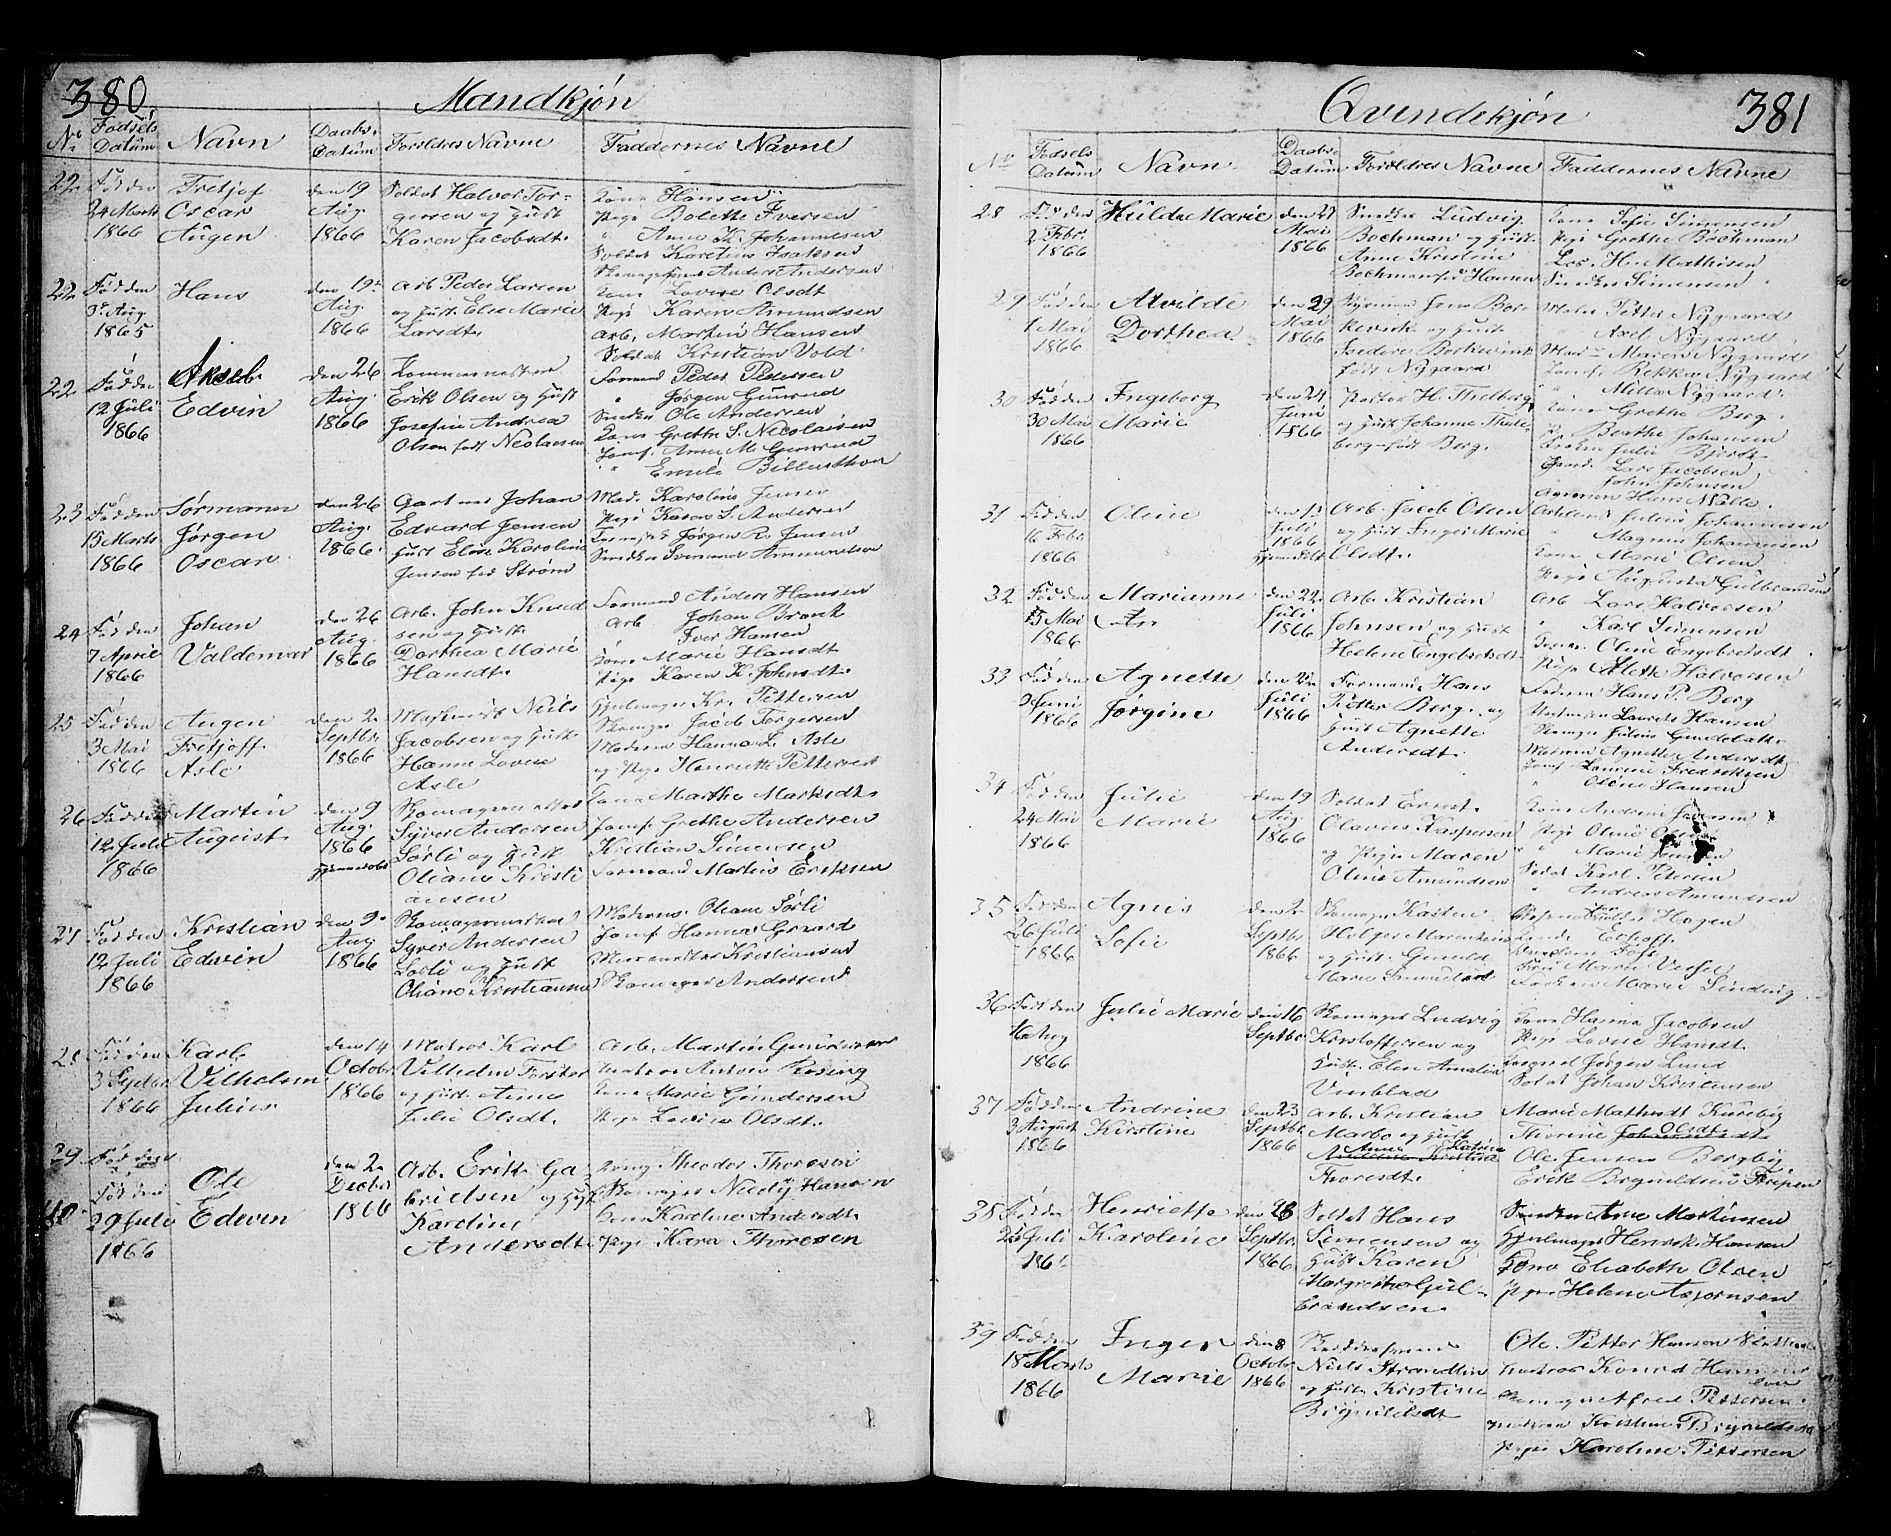 380
Mandkjøn
No
Fødsels Datum
Navn
Daabs-Datum
Forældres Navne
Faddernes Navne
22
Fød den
24 Marts
1866
Fretjof
Oscar
Augen
den 19
Aug.
1866
Soldat Halvor Tor-
gersen og Hust
Karen Jacobsdt.
Kone Hansen
Pige Bolette Iversen
" Anne K. Johannesen
Soldat Karelius Isaksen
Skomager Anders Andersen
22
Fød den
3 Aug
1865
Hans
den 19
Aug.
1866
Arb Peder Larsen
og Hust Else Marie
Larsdt.
Kone Lovise Olsdt
Pige Karen Amundsen
Arb. Martin Hansen
Soldat Kristian Vold
22
Fød den
12 Juli
1866
Aksel
Edvin
den 26
Aug.
1866
Erik Olsen og Hust
Josefine Andrea
Olsen født Nicolaisen
Sørmand Peder Pedersen
" Jørgen Gunrud
Snedker Ole Andersen
Kone Grethe S. Nicolaisen
Jomf. Anne M. Gunrud
" Emilie
23
Fød den
15 Marts
1866
Sørmann
Jørgen
Oscar
den 26
Aug.
1866
Gartner Johan
Edvard Jensen
Hust Elise Karoline
Jensen fød Strøm
Mad. Karoline Jensen
Pige Karen S. Andersen
Jørgen R. Jensen
Snedker Amundsen
24
Fød den
7 April
1866
Johan
Valdemar
den 26
Aug.
1866
Arb. John Knud
sen og Hust
Dorthea Marie
Hansdt.
Sørmand Anders Hansen
Arb Johan Brandt
" Iver Hansen
Kone Marie Hansdt
Pige Karen K. Johnsdt.
25
Fød den
3 Mai
1866
Augen
Fretjoff
Asle
den 2
Septbr.
1866
Maskinist Niels
Jacobsen og Hust
Hanne Lovise
Asle
Hjulmager Kr. Pettersen
Skomager Jacob Torgersen
Madame Hanna L. Asle
og Pige Henriette Pettersen
26
Fød den
12 Juli
1866
Martin
August
den 9
Aug.
1866
Hjemmedøbt
Skomagermester
Syver Andersen
Sørli og Hust
Oliane Kristi
ansen
Kone Marthe Marksdt.
Jomf. Grethe Andersen
Kristian Simensen
Sørmand Martin Eriksen
27
Fød den
12 Juli
1866
Kristian
Edvin
den 9
Aug
1866
Skomagermester
Syver Andersen
Sørli og Hust
Oliane Kristiansen
Madame Oliane Sørli
Jomf Hanna Gaard
Kristiansen
Skomager Andersen
28
Fød den
3 Septbr
1866
Karl
Vilhelm
Julius
den 14
Octobr.
1866
Matros Karl
Vilhelm Forster
og Hust. Anne
Julie Olsdt.
Arb. Martin Gundersen
Matros Anton Rosing
Kone Marie Gundersen
Pige Lovise Olsdt.
39
Fød den
40
Fød den
29 Juli
1866
Ole
Edevin
den 2
Decbr
1866
Arb. Erik Ga
brielsen og Hust
Karoline
Andersdt.
Theodor Thoresen
Skomager Niedy Hansen
Kone Karoline Andersdt.
Pige Kara Thoresen
Qvindekjøn
381
No
Fødsels Datum
Navn
Daabs-Datum
Forældres Navne
Faddernes Navne
28
Fød den
2 Febr.
1866
Hulda Marie
den 27
Mai
1866
Snedker Ludvig
Bochman og Hust.
Anne Kristine
Bochman fød Hansen
Kone Sofie Simensen
Pige Grethe Bochman
H. Mathisen
Snedker Simensen
29
Fød den
1 Mai
1866
Alvilde
Dorthea
den 29
Mai
1866
Styrmand Jens Bor-
kevik og Hust
Isedere Borkevink
født Nygaard
Maler Petter Nygaard
Axel Nygaard
Mad. Maren Nygaard
Jomf. Rekka Nygaard
" Milla Nygaard
30
Fød den
30 Mai
1866
Ingeborg
Marie
den 24
Juni
1866
H. Thelberg
og Hust Johanne Thel-
berg født Berg.
Kone Grethe Berg.
Berthe Johansen
Julie Bjerdt
Gaard. Lars Jacobsen
John Johnsen
Hans Nolte
31
Fød den
16 Febr.
1866
Oline
den 15
Juli
1866
Hjemmedøbt
Arb. Jacob Olsen
og Hust Inger Marie
Olsdt.
Julius Johannesen
" Magnus Johannesen
Kone Marie Olsen
Pige Augusta Gulbrandsen
32
Fød den
15 Mai
1866
Marianne
An
den 22
Juli
1866
Arb. Kristian
Johnsen og Hust
Helene Engebretsdt.
Arb Lars Halvorsen
" Karl Simensen
Oline Engebretsdt.
Pige Alette Halvorsen
33
Fød den
9 Juni
1866
Agnette
Jørgine
den 22
Juli
1866
Formand Hans
Petter Berg og
Hust Agnette
Andersdt.
Hans P. Berg
Laurits Hansen
Skomager Julius Gundelak
Madame Agnette Andersdt
Jomf Laurine Fredriksen
" Olene Hansen
34
Fød den
24 Mai
1866
Julie
Marie
den 19
Aug
1866
Soldat Ernst
Olavus Kaspersen
og Pige Maren
Oline Amundsen
Kone Andrine
Pige Oline
" Marie Jensen
Soldat Karl Petersen
" Andreas Amundsen
35
Fød den
26 Juli
1866
Agnes
Sofie
den 2
Septbr
1866
Skomager Karsten
Holger
og Hust. Gunild
Marie Samuelsen
Hagen
Echoff
Foss
Frue Marie Vessel
Frøken Marie Sinding
36
Fød den
16 Aug
1866
Julie Marie
den 16
Septbr
Skomager Ludvig
Kristoffersen og
Hust. Elen Amalia
Vinblad
Kone Hanna Jacobsen
Pige Lovise Hansdt.
Jørgen Lund
Soldat Johan Kristensen
37
Fød den
3 August
1866
Andrine
Kirstine
den 23
Septbr.
1866
Arb. Kristian
Marbo og Hust
Anne Katrine
Thoresdt.
Marie Mathisdt Kureby
Thorine Olsdt.
Ole Jensen Bergby
Erik Brynildsen
38
Fød den
25 Juli
186
Henriette
Karoline
den 23
Septbr.
1866
Soldat Hans
Simensen og
Hust Karen
Margrethe Gul-
brandsen
Snedker Arne Martinsen
Hjulmager Henrik Hansen
Kone Elisabeth Olsen
Pige Helene Asjornsen
39
Fød den
18 Marts
1866
Inger
Marie
den 8
Octobr
1866
Skræddersvend
Niels Strandlin
og Hust Kristine
Brynildsdt
Ole Petter Hansen
Matros Konrad Hansen
Skomager Alfred Pettersen
Kristine Brynildsen
Pige Karoline Pettersen